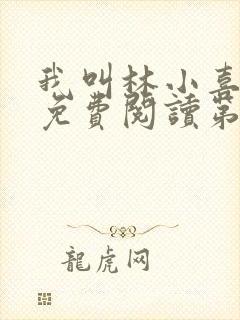 我叫林小喜
免費閱讀第
龍虎网